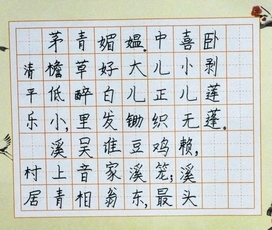 清平乐 村居
茅檐低小,溪上青
青草醉里吴音相
媚好白发谁家翁
媪.大儿锄豆溪东,
中儿正织鸡笼;最
喜小儿无赖,溪头
卧剥莲蓬.